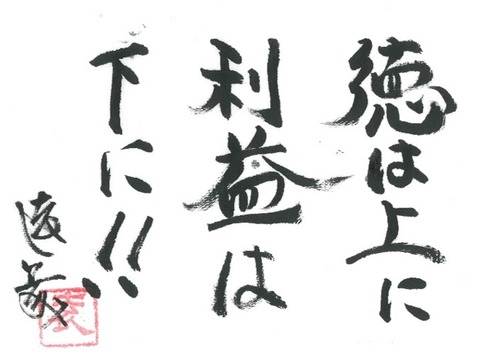 徳は上に
利益は
下に!!